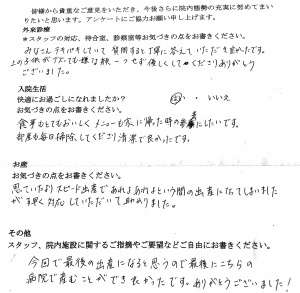 皆様から貴重なご意見をいただき、今後さらに院内態勢の充実に努めてまい
りたいと思います。アンケートにご協力お願い申し上げます。
外来診療
*スタッフの対応、待合室、診察室等お気づきの点をお書きください。
みなさんテキパキしていて質問すると丁寧に答えていただき良かったです。
上の子供がグズっても嫌な顔一つせず優しくしてくださりありがとう
ございました。
入院生活
快適にお過ごしになれましたか? はい ・ いいえ
お気づきの点をお書きください。
食事もとてもおいしくメニューも家に帰った時の参考にしたいです。
部屋も毎日掃除してくださり清潔で良かったです。
お産
お気づきの点をお書きください。
思っていたよりスピード出産であれよあれよという間の出産になってしまいました
が手早く対応していただいて助かりました。
その他
スタッフ、院内施設に関するご指摘やご要望などご自由にお書きください。
今回で最後の出産になると思うので最後にこちらの
病院で産むことができ良かったです。ありがとうございました!